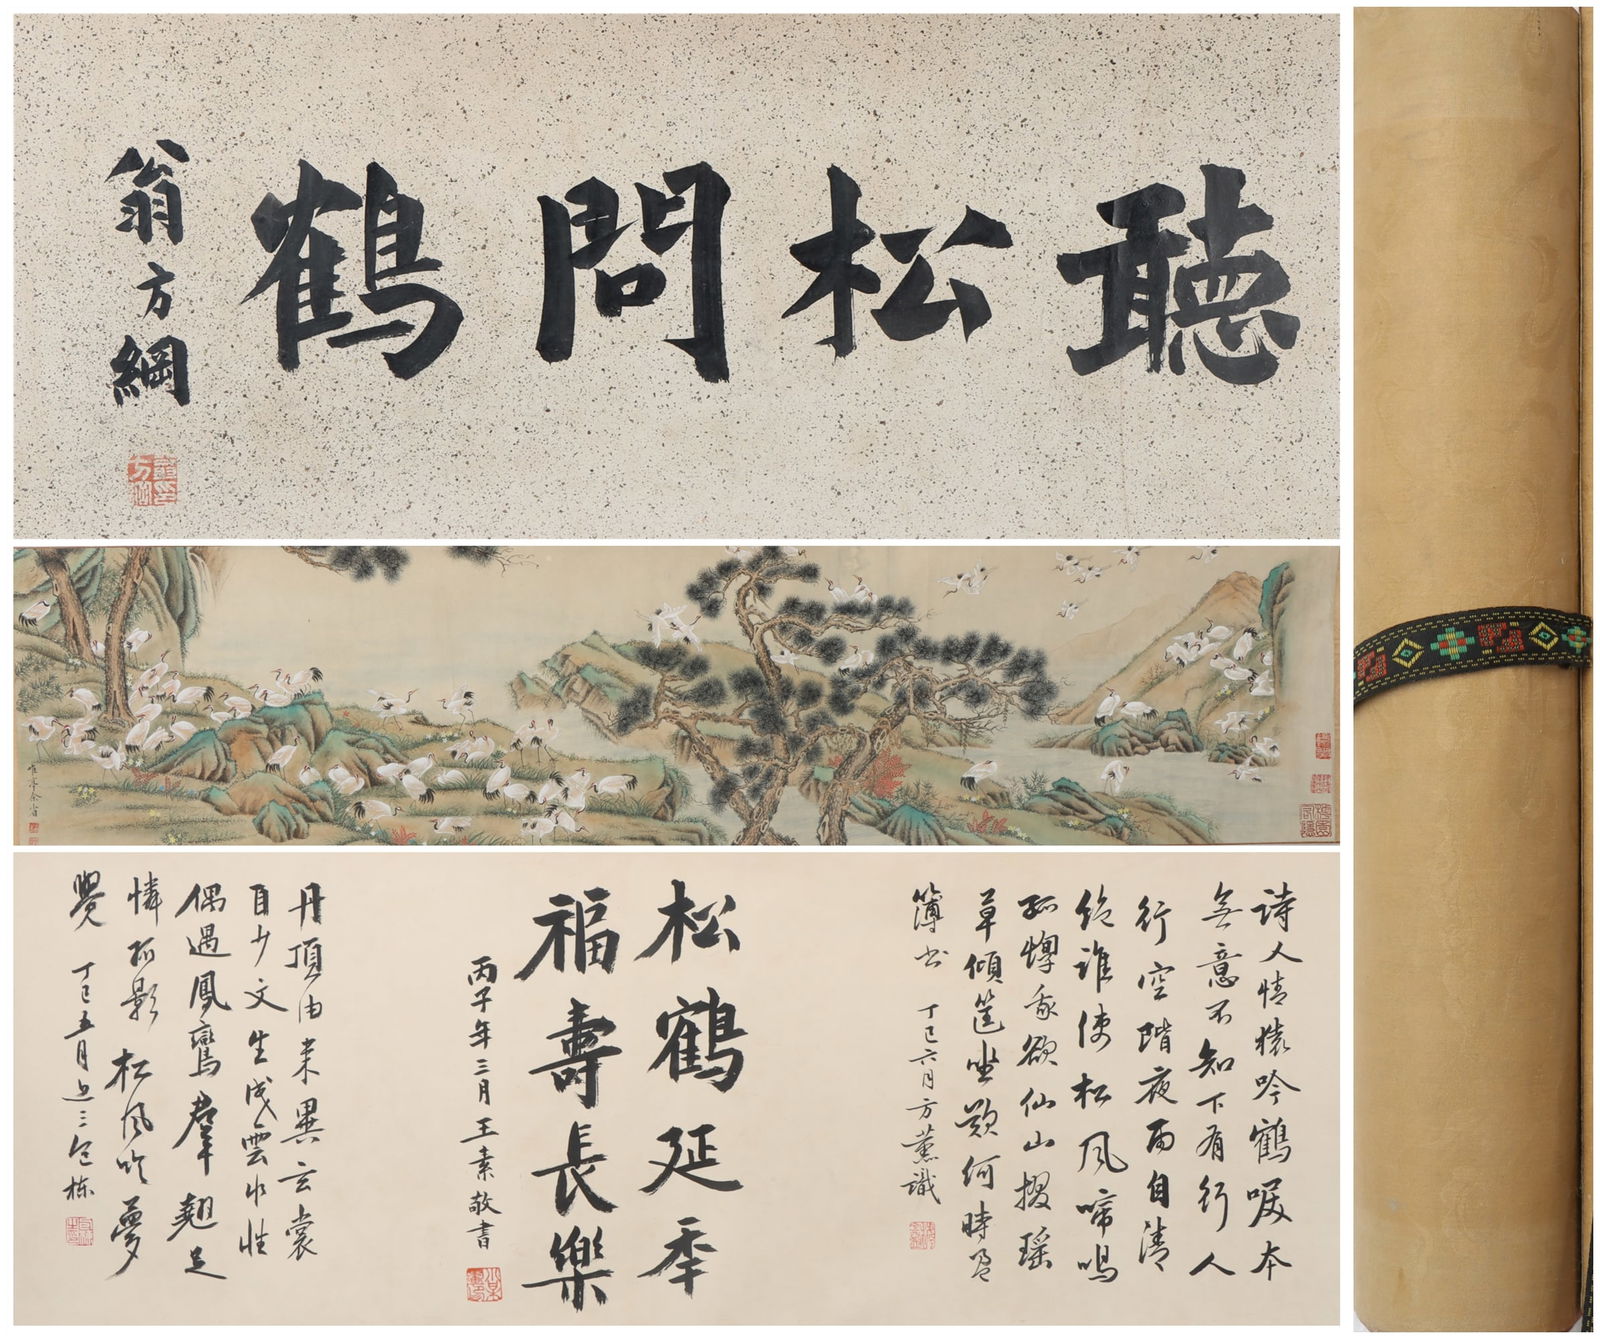 聽松問鶴
翁方綱
松鶴延年
福壽長樂
丙子年三月王素敬書
詩人情猿吟鶴唳本
無意不知下有行人
行空階夜雨自清
絶誰使松風啼鳴
孤惸我欲仙山掇瑶
草傾筐坐歎何時盈
簿書
丁巳六月方薰識
丹頂由来異玄裳
自少文生成雲水性
偶遇鳳鸞羣翹足
憐孤影松風吹夢
覺
丁巳五月
包栋